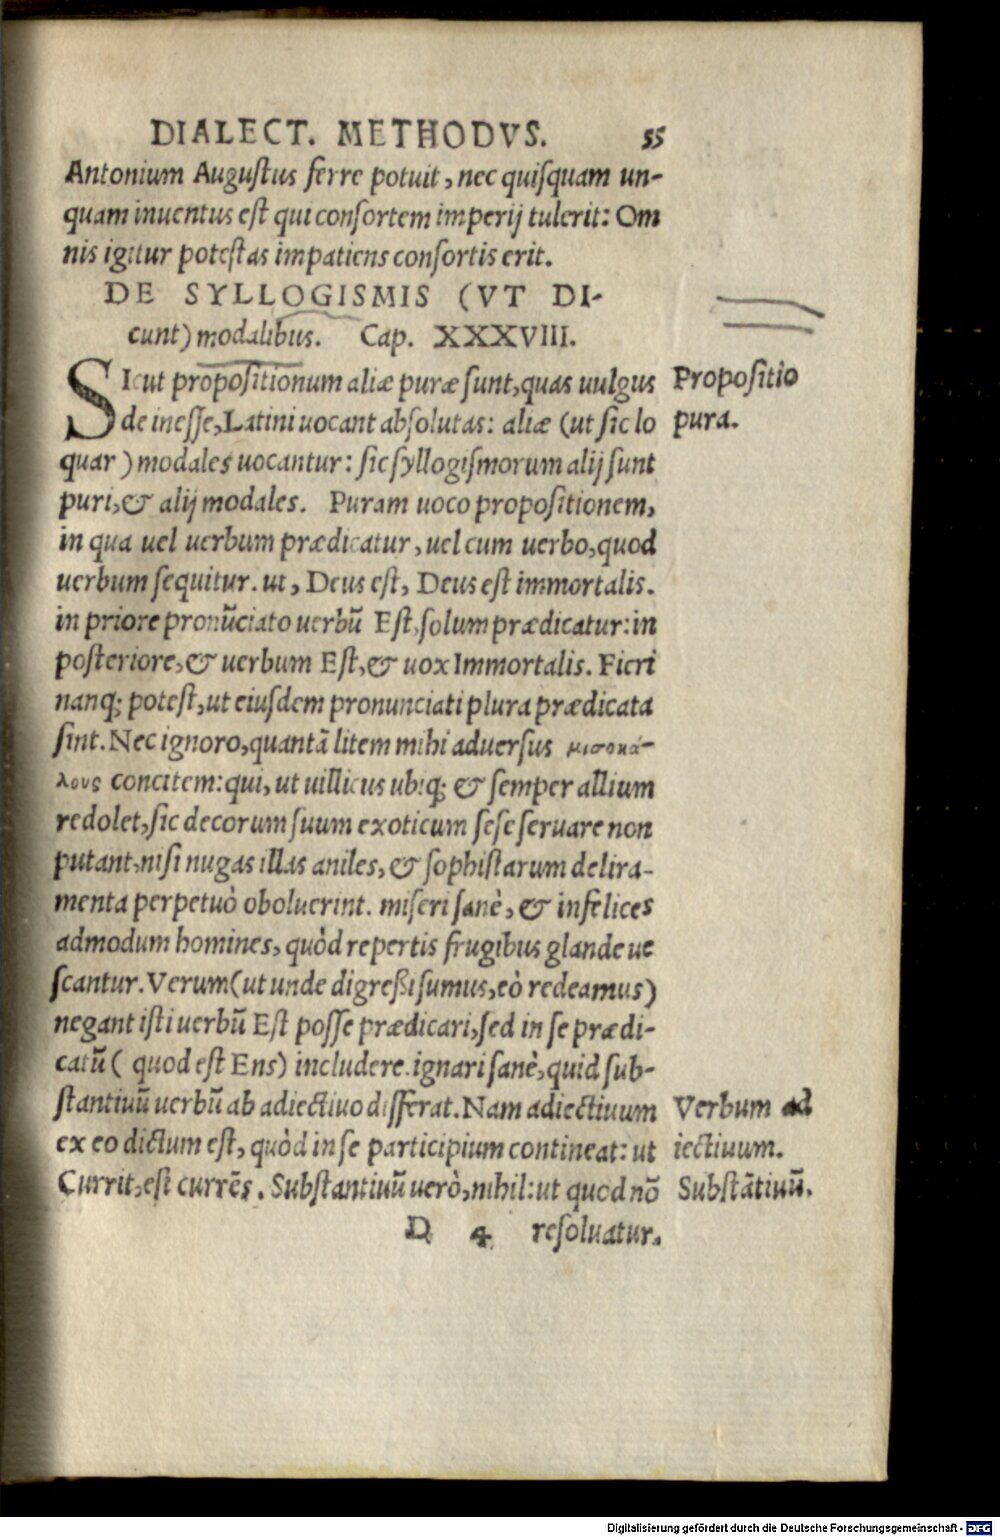 DIALECT. METHODVS. 55
Antonium Augustus ferre potuit, nec quisquam un-
quam inuentus est qui consortem imperij tulerit: Om
nis igitur potestas impatiens consortis erit.
DE SYLLOGISMIS (VT DI-
cunt) modalibus. Cap. XXXVIII.
SIcut propositionum aliæ puræ sunt, quas uulgus
Propositio
de inesse, Latini uocant absolutas: aliæ (ut sic lo
pura.
quar) modales uocantur: sic syllogismorum alij sunt
puri, & alij modales. Puram uoco propositionem,
in qua uel uerbum prædicatur, uel cum uerbo, quod
uerbum sequitur. ut, Deus est, Deus est immortalis.
in priore pronūciato uerbū Est, solum prædicatur: in
posteriore, & uerbum Est, & uox Immortalis. Fieri
nanq; potest, ut eiusdem pronunciati plura prædicata
sint. Nec ignoro, quantā litem mihi aduersus μισοκά-
λους concitem: qui, ut uillicus ubiq; & semper allium
redolet, sic decorum suum exoticum sese seruare non
putant, nisi nugas illas aniles, & sophistarum delira-
menta perpetuò oboluerint. miseri sanè, & infelices
admodum homines, quòd repertis frugibus glande ue
scantur. Verum (ut unde digreßi sumus, eò redeamus)
negant isti uerbū Est posse prædicari, sed in se prædi-
catū (quod est Ens) includere. ignari sanè, quid sub-
stantiuū uerbū ab adiectiuo differat. Nam adiectiuum
Verbum ad
ex eo dictum est, quòd in se participium contineat: ut
iectiuum.
Currit, est currēs. Substantiuū uerò, nihil: ut quod nō
Substātiuū.
D 4 resoluatur.
Digitalisierung gefördert durch die Deutsche Forschungsgemeinschaft - DFG